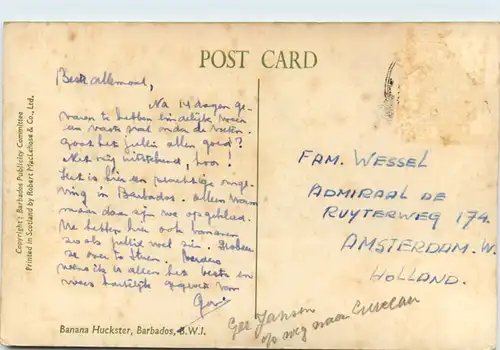 POST CARD
Beste allemaal,
Na 14 dagen ge-
varen te hebben eindelijk weer
een vaste grond onder de voeten.
Gaat het jullie allen goed?
Met mij uitstekend, hoor!
Het is hier een prachtige omge-
ving in Barbados. Alleen warm
maar daar zijn we op gekleed.
We hebben hier ook bananen
zoals jullie wel zien.
ze over te sturen. Verders
wens ik allen het beste en
wees hartelijk gegroet van
Ger.
Banana Huckster, Barbados, B.W.I.
Copyright: Barbados Publicity Committee
Printed in Scotland by Robert MacLehose & Co., Ltd.
FAM. WESSEL
ADMIRAAL DE
RUYTERWEG 174
AMSTERDAM. W.
HOLLAND.
Ger Jansen
op weg naar Curacau